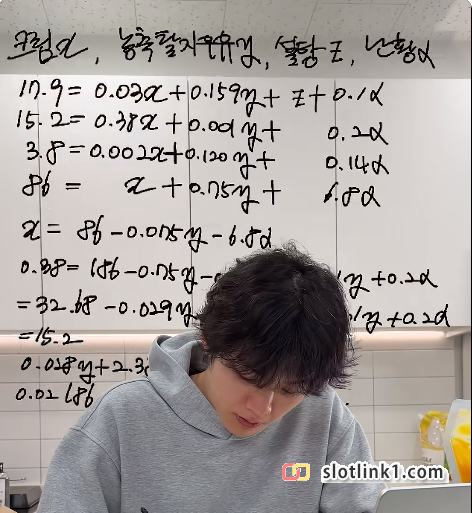 크림x, 농축탈지우유y, 설탕z, 난황α
17.9= 0.03x+0.159y+ z+0.1α
15.2= 0.38x+0.001y+ 0.2α
3.8=0.002x+0.120y+ 0.14α
86 = x+0.75y+ 6.8α
x= 86-0.075y-6.8α
0.38= 186-0.75y- y+0.2α
=32.68-0.029y 1y+0.2α
=15.2
0.028y+2.3
0.02186
slotlink1.com